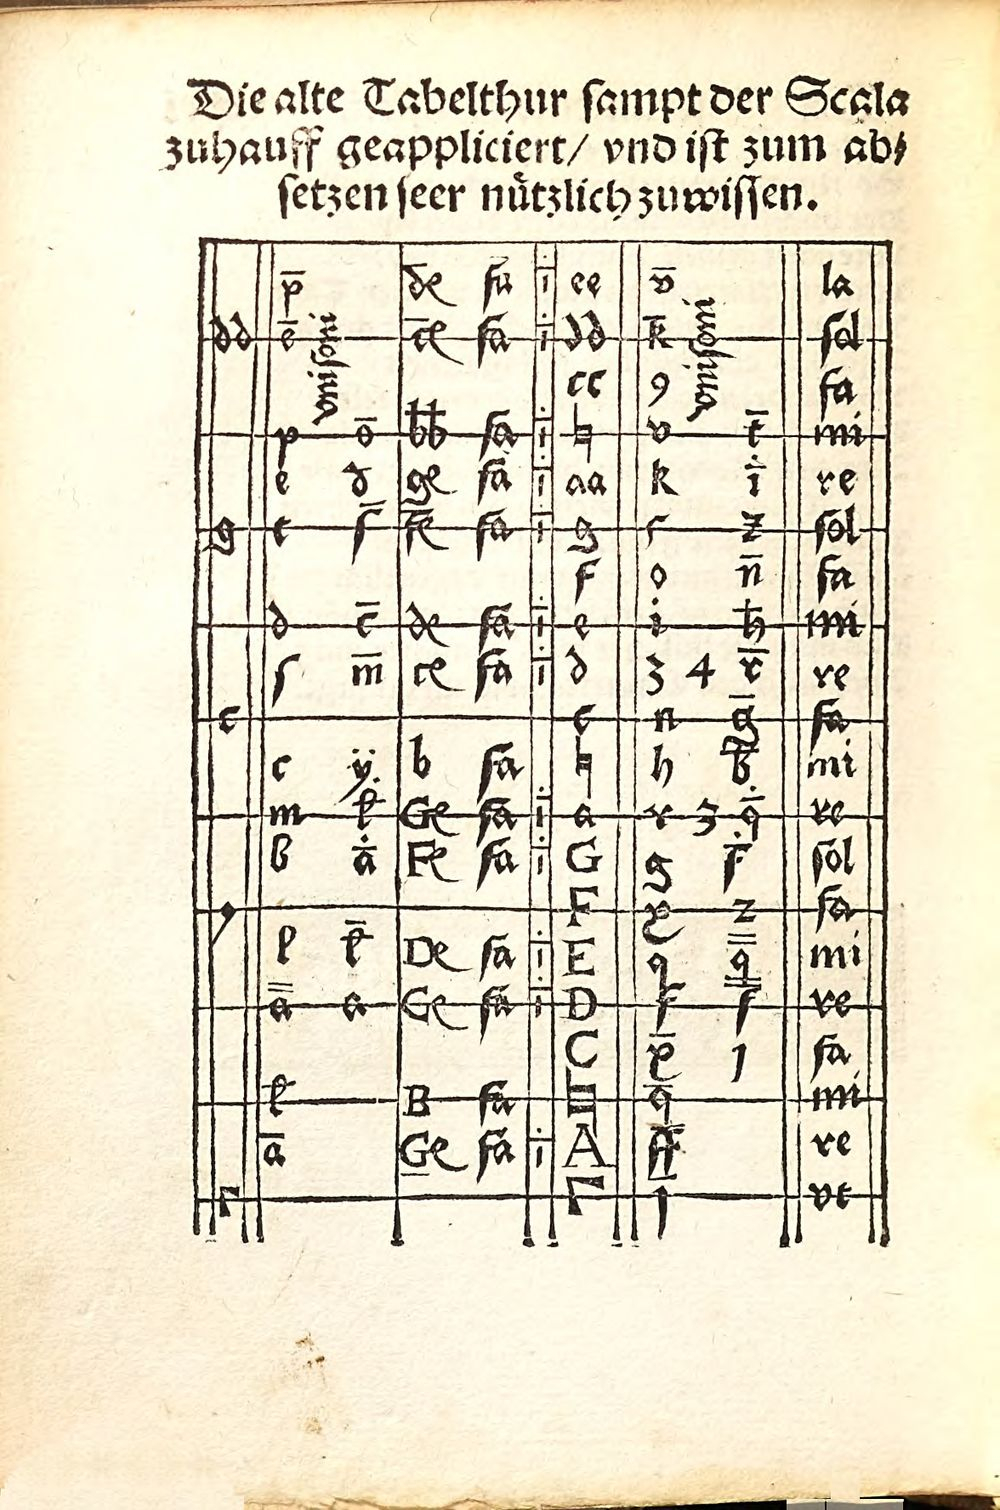 Die alte Tabelthur sampt der Scala
zuhauff geappliciert/ vnd ist zum ab⸗
setzen seer nützlich zuwissen.
p̅ de fa i ee v̅ la
dd e̅ ce fa i dd k̅ sol
vnisoni cc 9 vnisoni fa
p o̅ bb fa i ♮ v t̅ mi
e d ge fa i aa k i re
g t s̅ fe fa i g r z sol
F o n̅ fa
d c̅ de fa i e i h̅ mi
s m̅ ce fa i d 3 4 r̅ re
c c n g̅ fa
c ÿ b fa ♮ h b̅ mi
m l̅ Ge fa i a r 3 q̅ re
b a̅ Fe fa i G g f̅ sol
F z fa
l l̅ De fa i E q q̿ mi
a̿ a Ge fa i D f f̿ re
C p̅ 1 fa
l̅ B fa ♮ q̅ mi
a̅ Ge fa i A re
Γ Γ 1 vt